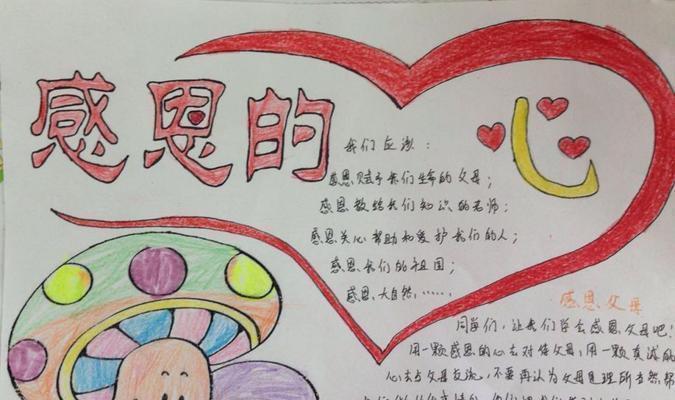 感恩的心
我们应该：
感恩赋予我们生命的父母；
感恩教给我们知识的老师；
感恩关心帮助和爱护我们的人；
感恩我们的祖国；
感恩大自然，……
感恩父母
同学们，让我们学会感恩父母吧！
用一颗感恩的心去对待父母，用一颗真诚的
心去与父母交流，不要再认为父母是理所当然帮